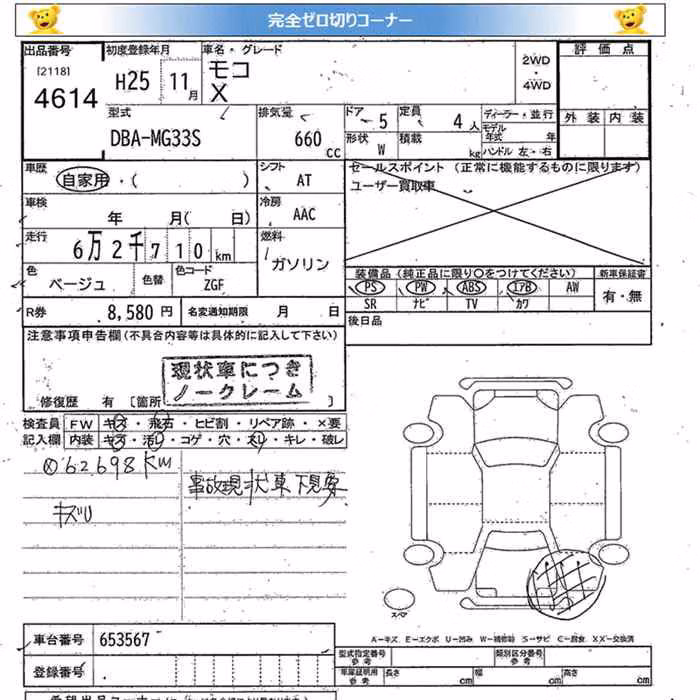 完全ゼロ切りコーナー
出品番号 初度登録年月 車名・グレード 評価点
[2118] H25 11月 モコ 2WD
4614 X ・
4WD
型式 排気量 ドア 5 定員 4人 ディーラー・並行 外装 内装
DBA-MG33S 660 cc 形状 W 積載 kg モデル年式 年
ハンドル 左・右
車歴 シフト セールスポイント (正常に機能するものに限ります)
自家用・( ) AT ユーザー買取車
車検 冷房
年 月( 日) AAC
走行 燃料
6万2千710km ガソリン
色 色替 色コード 装備品(純正品に限り〇をつけてください) 新車保証書
ベージュ ZGF PS PW ABS エアB AW 有・無
SR ナビ TV カワ
R券 8,580円 名変通知期限 月 日 後日品
注意事項申告欄(不具合内容等は具体的に記入して下さい)
現状車につき
ノークレーム
修復歴 有 [箇所 ]
検査員 FW キズ・飛石・ヒビ割・リペア跡・×要
記入欄 内装 キズ・汚レ・コゲ・穴・スレ・キレ・破レ
62698KM
事故現状車下見要
キズU
スペア
A-キズ E-エクボ U-凹み W-補修跡 S-サビ C-腐食 XX-交換済
車台番号 653567
型式指定番号 参考 類別区分番号 参考
登録番号 車庫証明用 参考 長さ cm 幅 cm 高さ cm